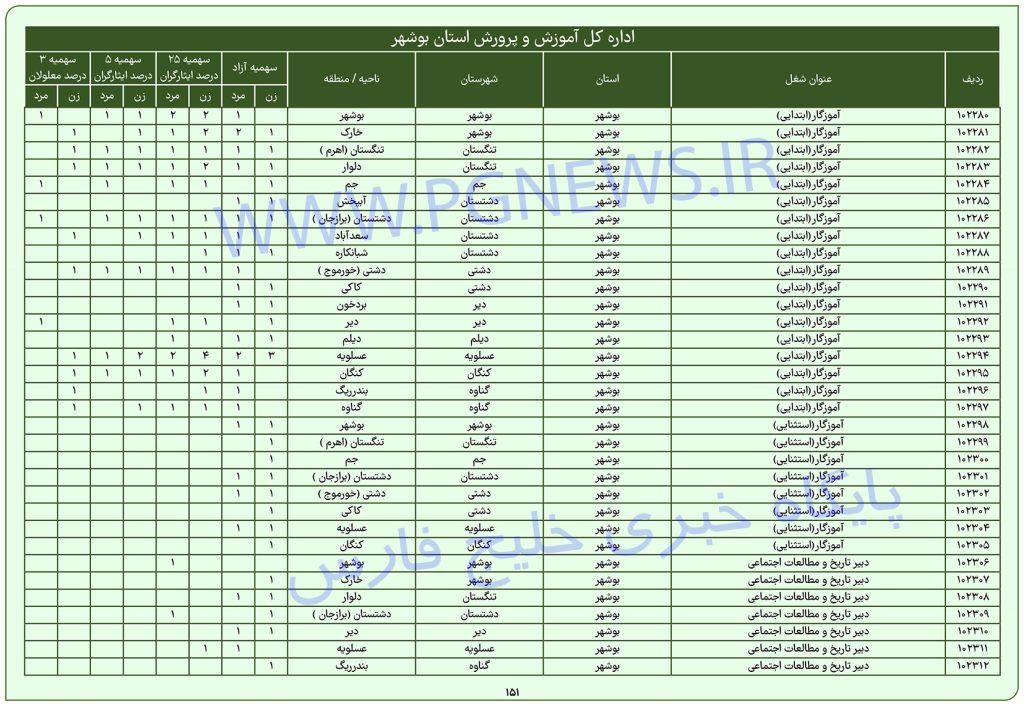 اداره کل آموزش و پرورش استان بوشهر
ردیف عنوان شغل استان شهرستان ناحیه / منطقه سهمیه آزاد سهمیه ۲۵ درصد ایثارگران سهمیه ۵ درصد ایثارگران سهمیه ۳ درصد معلولان
زن مرد زن مرد زن مرد زن مرد
۱۰۲۲۸۰ آموزگار(ابتدایی) بوشهر بوشهر بوشهر ۱ ۲ ۲ ۱ ۱ ۱
۱۰۲۲۸۱ آموزگار(ابتدایی) بوشهر بوشهر خارک ۱ ۲ ۲ ۱ ۱ ۱
۱۰۲۲۸۲ آموزگار(ابتدایی) بوشهر تنگستان تنگستان (اهرم ) ۱ ۱ ۱ ۱ ۱ ۱ ۱
۱۰۲۲۸۳ آموزگار(ابتدایی) بوشهر تنگستان دلوار ۱ ۱ ۲ ۱ ۱ ۱ ۱
۱۰۲۲۸۴ آموزگار(ابتدایی) بوشهر جم جم ۱ ۱ ۱ ۱ ۱
۱۰۲۲۸۵ آموزگار(ابتدایی) بوشهر دشتستان آبپخش ۱ ۱
۱۰۲۲۸۶ آموزگار(ابتدایی) بوشهر دشتستان دشتستان (برازجان ) ۱ ۱ ۱ ۱ ۱ ۱ ۱
۱۰۲۲۸۷ آموزگار(ابتدایی) بوشهر دشتستان سعدآباد ۱ ۱ ۱ ۱ ۱
۱۰۲۲۸۸ آموزگار(ابتدایی) بوشهر دشتستان شبانکاره ۱ ۱ ۱
۱۰۲۲۸۹ آموزگار(ابتدایی) بوشهر دشتی دشتی (خورموج ) ۱ ۱ ۱ ۱ ۱ ۱
۱۰۲۲۹۰ آموزگار(ابتدایی) بوشهر دشتی کاکی ۱ ۱
۱۰۲۲۹۱ آموزگار(ابتدایی) بوشهر دیر بردخون ۱ ۱
۱۰۲۲۹۲ آموزگار(ابتدایی) بوشهر دیر دیر ۱ ۱ ۱ ۱
۱۰۲۲۹۳ آموزگار(ابتدایی) بوشهر دیلم دیلم ۱ ۱ ۱
۱۰۲۲۹۴ آموزگار(ابتدایی) بوشهر عسلویه عسلویه ۳ ۲ ۴ ۲ ۲ ۱ ۱
۱۰۲۲۹۵ آموزگار(ابتدایی) بوشهر کنگان کنگان ۱ ۲ ۱ ۱ ۱ ۱
۱۰۲۲۹۶ آموزگار(ابتدایی) بوشهر گناوه بندرریگ ۱ ۱ ۱
۱۰۲۲۹۷ آموزگار(ابتدایی) بوشهر گناوه گناوه ۱ ۱ ۱ ۱ ۱
۱۰۲۲۹۸ آموزگار(استثنایی) بوشهر بوشهر بوشهر ۱ ۱
۱۰۲۲۹۹ آموزگار(استثنایی) بوشهر تنگستان تنگستان (اهرم ) ۱
۱۰۲۳۰۰ آموزگار(استثنایی) بوشهر جم جم ۱
۱۰۲۳۰۱ آموزگار(استثنایی) بوشهر دشتستان دشتستان (برازجان ) ۱ ۱
۱۰۲۳۰۲ آموزگار(استثنایی) بوشهر دشتی دشتی (خورموج ) ۱ ۱
۱۰۲۳۰۳ آموزگار(استثنایی) بوشهر دشتی کاکی ۱
۱۰۲۳۰۴ آموزگار(استثنایی) بوشهر عسلویه عسلویه ۱ ۱
۱۰۲۳۰۵ آموزگار(استثنایی) بوشهر کنگان کنگان ۱
۱۰۲۳۰۶ دبیر تاریخ و مطالعات اجتماعی بوشهر بوشهر بوشهر ۱
۱۰۲۳۰۷ دبیر تاریخ و مطالعات اجتماعی بوشهر بوشهر خارک ۱
۱۰۲۳۰۸ دبیر تاریخ و مطالعات اجتماعی بوشهر تنگستان دلوار ۱ ۱
۱۰۲۳۰۹ دبیر تاریخ و مطالعات اجتماعی بوشهر دشتستان دشتستان (برازجان ) ۱ ۱
۱۰۲۳۱۰ دبیر تاریخ و مطالعات اجتماعی بوشهر دیر دیر ۱ ۱
۱۰۲۳۱۱ دبیر تاریخ و مطالعات اجتماعی بوشهر عسلویه عسلویه ۱ ۱
۱۰۲۳۱۲ دبیر تاریخ و مطالعات اجتماعی بوشهر گناوه بندرریگ ۱
۱۵۱
WWW.PGNEWS.IR
پایگاه خبری خلیج فارس